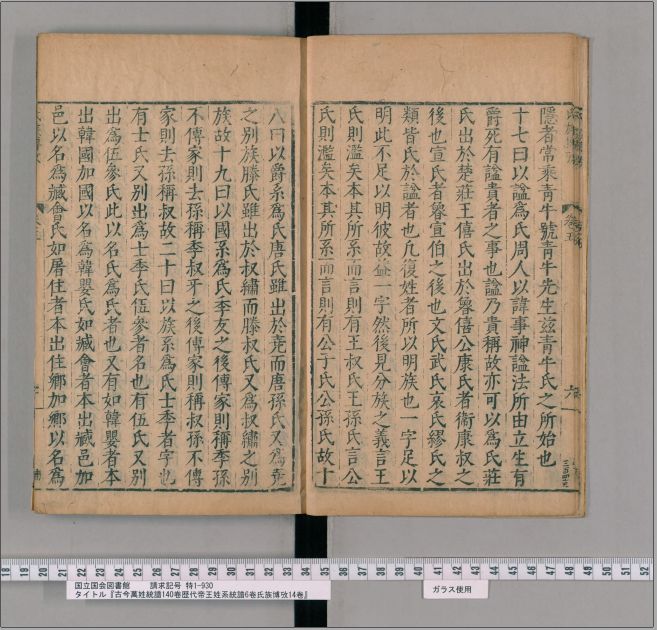 隱者常乘青牛號青牛先生玆青牛氏之所始也
十七曰以諡爲氏周人以諱事神諡法所由立生有
爵死有諡貴者之事也諡乃貴稱故亦可以爲氏莊
氏出於楚莊王僖氏出於魯僖公康氏者衛康叔之
後也宣氏者魯宣伯之後也文氏武氏哀氏繆氏之
類皆氏於諡者也凡復姓者所以明族也一字足以
明此不足以明彼故益一字然後見分族之義言王
氏則濫矣本其所系而言則有王叔氏王孫氏言公
氏則濫矣本其所系而言則有公子氏公孫氏故十
八曰以爵系爲氏唐氏雖出於堯而唐孫氏又爲堯
之別族滕氏雖出於叔繡而滕叔氏又爲叔繡之別
族故十九曰以國系爲氏季友之後傳家則稱季孫
不傳家則去孫稱季叔牙之後傳家則稱叔孫不傳
家則去孫稱叔故二十曰以族系爲氏士季者字也
有士氏又別出爲士季氏伍參者名也有伍氏又別
出爲伍參氏此以名氏爲氏者也又有如韓嬰者本
出韓國加國以名爲韓嬰氏如臧會者本出臧邑加
邑以名爲臧會氏如屠住者本出住鄉加鄉以名爲
卷五
六
国立国会図書館 請求記号 特1-930
タイトル『古今萬姓統譜140卷歴代帝王姓系統譜6卷氏族博攷14卷』
ガラス使用
18 19 20 21 22 23 24 25 26 27 28 29 30 31 32 33 34 35 36 37 38 39 40 41 42 43 44 45 46 47 48 49 50 51 52